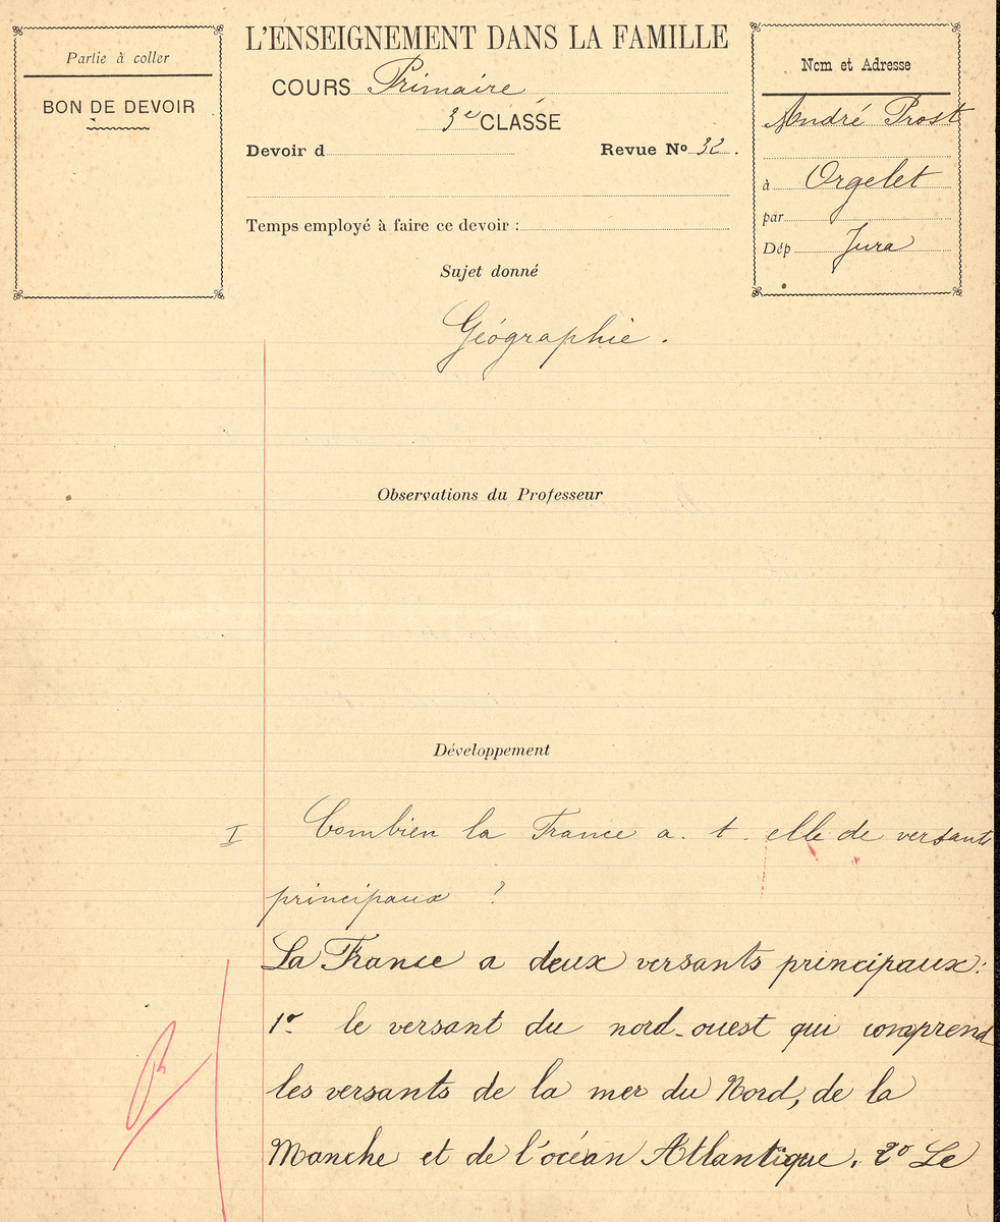 Partie à coller
BON DE DEVOIR
L'ENSEIGNEMENT DANS LA FAMILLE
COURS Primaire
3e CLASSE
Devoir d
Revue No 32.
Temps employé à faire ce devoir :
Nom et Adresse
André Prost
à Orgelet
par
Dép Jura
Sujet donné
Géographie.
Observations du Professeur
Développement
I Combien la France a. t. elle de versants
principaux ?
La France a deux versants principaux:
1o le versant du nord-ouest qui comprend
les versants de la mer du Nord, de la
Manche et de l'océan Atlantique. 2o Le
B